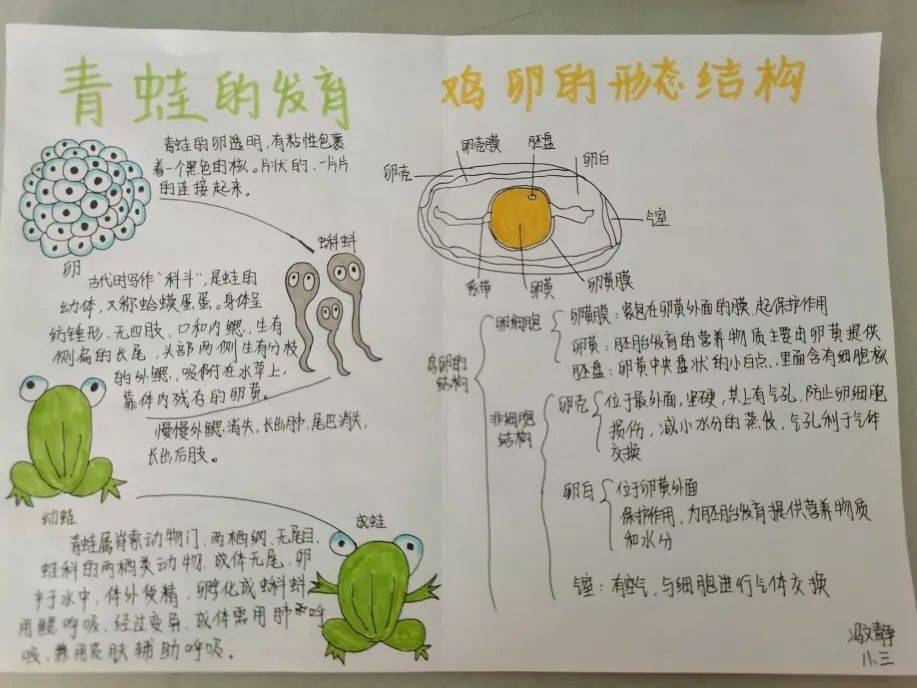 青蛙的发育
青蛙的卵透明,有粘性包裹
着一个黑色的核。片状的,一片片
的连接起来。
卵
蝌蚪
古代时写作“科斗”,是蛙的
幼体,又称蛤蟆蛋蛋。身体呈
纺锤形,无四肢、口和内鳃,生有
侧扁的长尾,头部两侧生有分枝
的外鳃,吸附在水草上,
靠体内残存的卵黄。
慢慢外鳃消失,长出肺,尾巴消失,
长出后肢。
幼蛙
成蛙
青蛙属脊索动物门、两栖纲、无尾目、
蛙科的两栖类动物,成体无尾,卵
产于水中,体外受精,孵化成蝌蚪
用鳃呼吸,经过变异,成体需用肺呼
吸,兼用皮肤辅助呼吸。
鸡卵的形态结构
卵壳
卵壳膜
胚盘
卵白
气室
系带
卵黄
卵黄膜
鸡卵的
结构
卵细胞
卵黄膜:紧包在卵黄外面的膜,起保护作用
卵黄:胚胎发育的营养物质主要由卵黄提供
胚盘:卵黄中央盘状的小白点,里面含有细胞核
非细胞
结构
卵壳
位于最外面,坚硬,其上有气孔,防止卵细胞
损伤,减小水分的蒸发,气孔利于气体
交换
卵白
位于卵黄外面
保护作用,为胚胎发育提供营养物质
和水分
气室:有空气,与细胞进行气体交换
冯文静
八.三